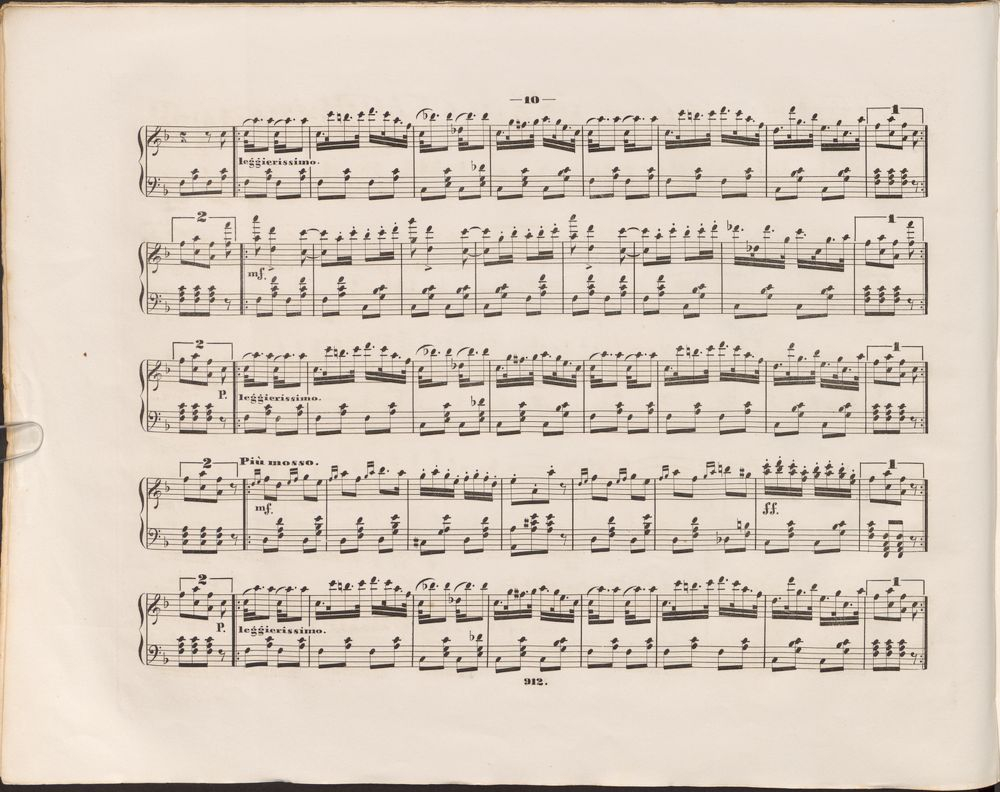 —10—
1
leggierissimo.
2 1
mf.
2 1
P. leggierissimo.
2 Più mosso. 1
mf. ff.
2 1
P. leggierissimo.
912.